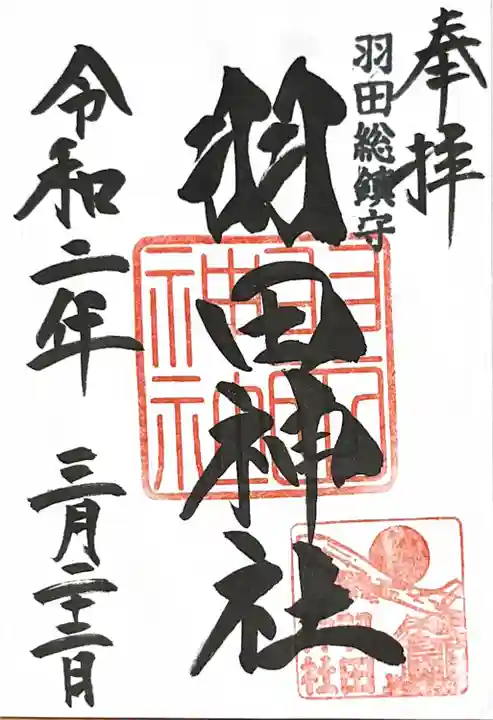 奉拝
羽田総鎮守
羽田神社
令和二年 三月二十三日
羽田
神社